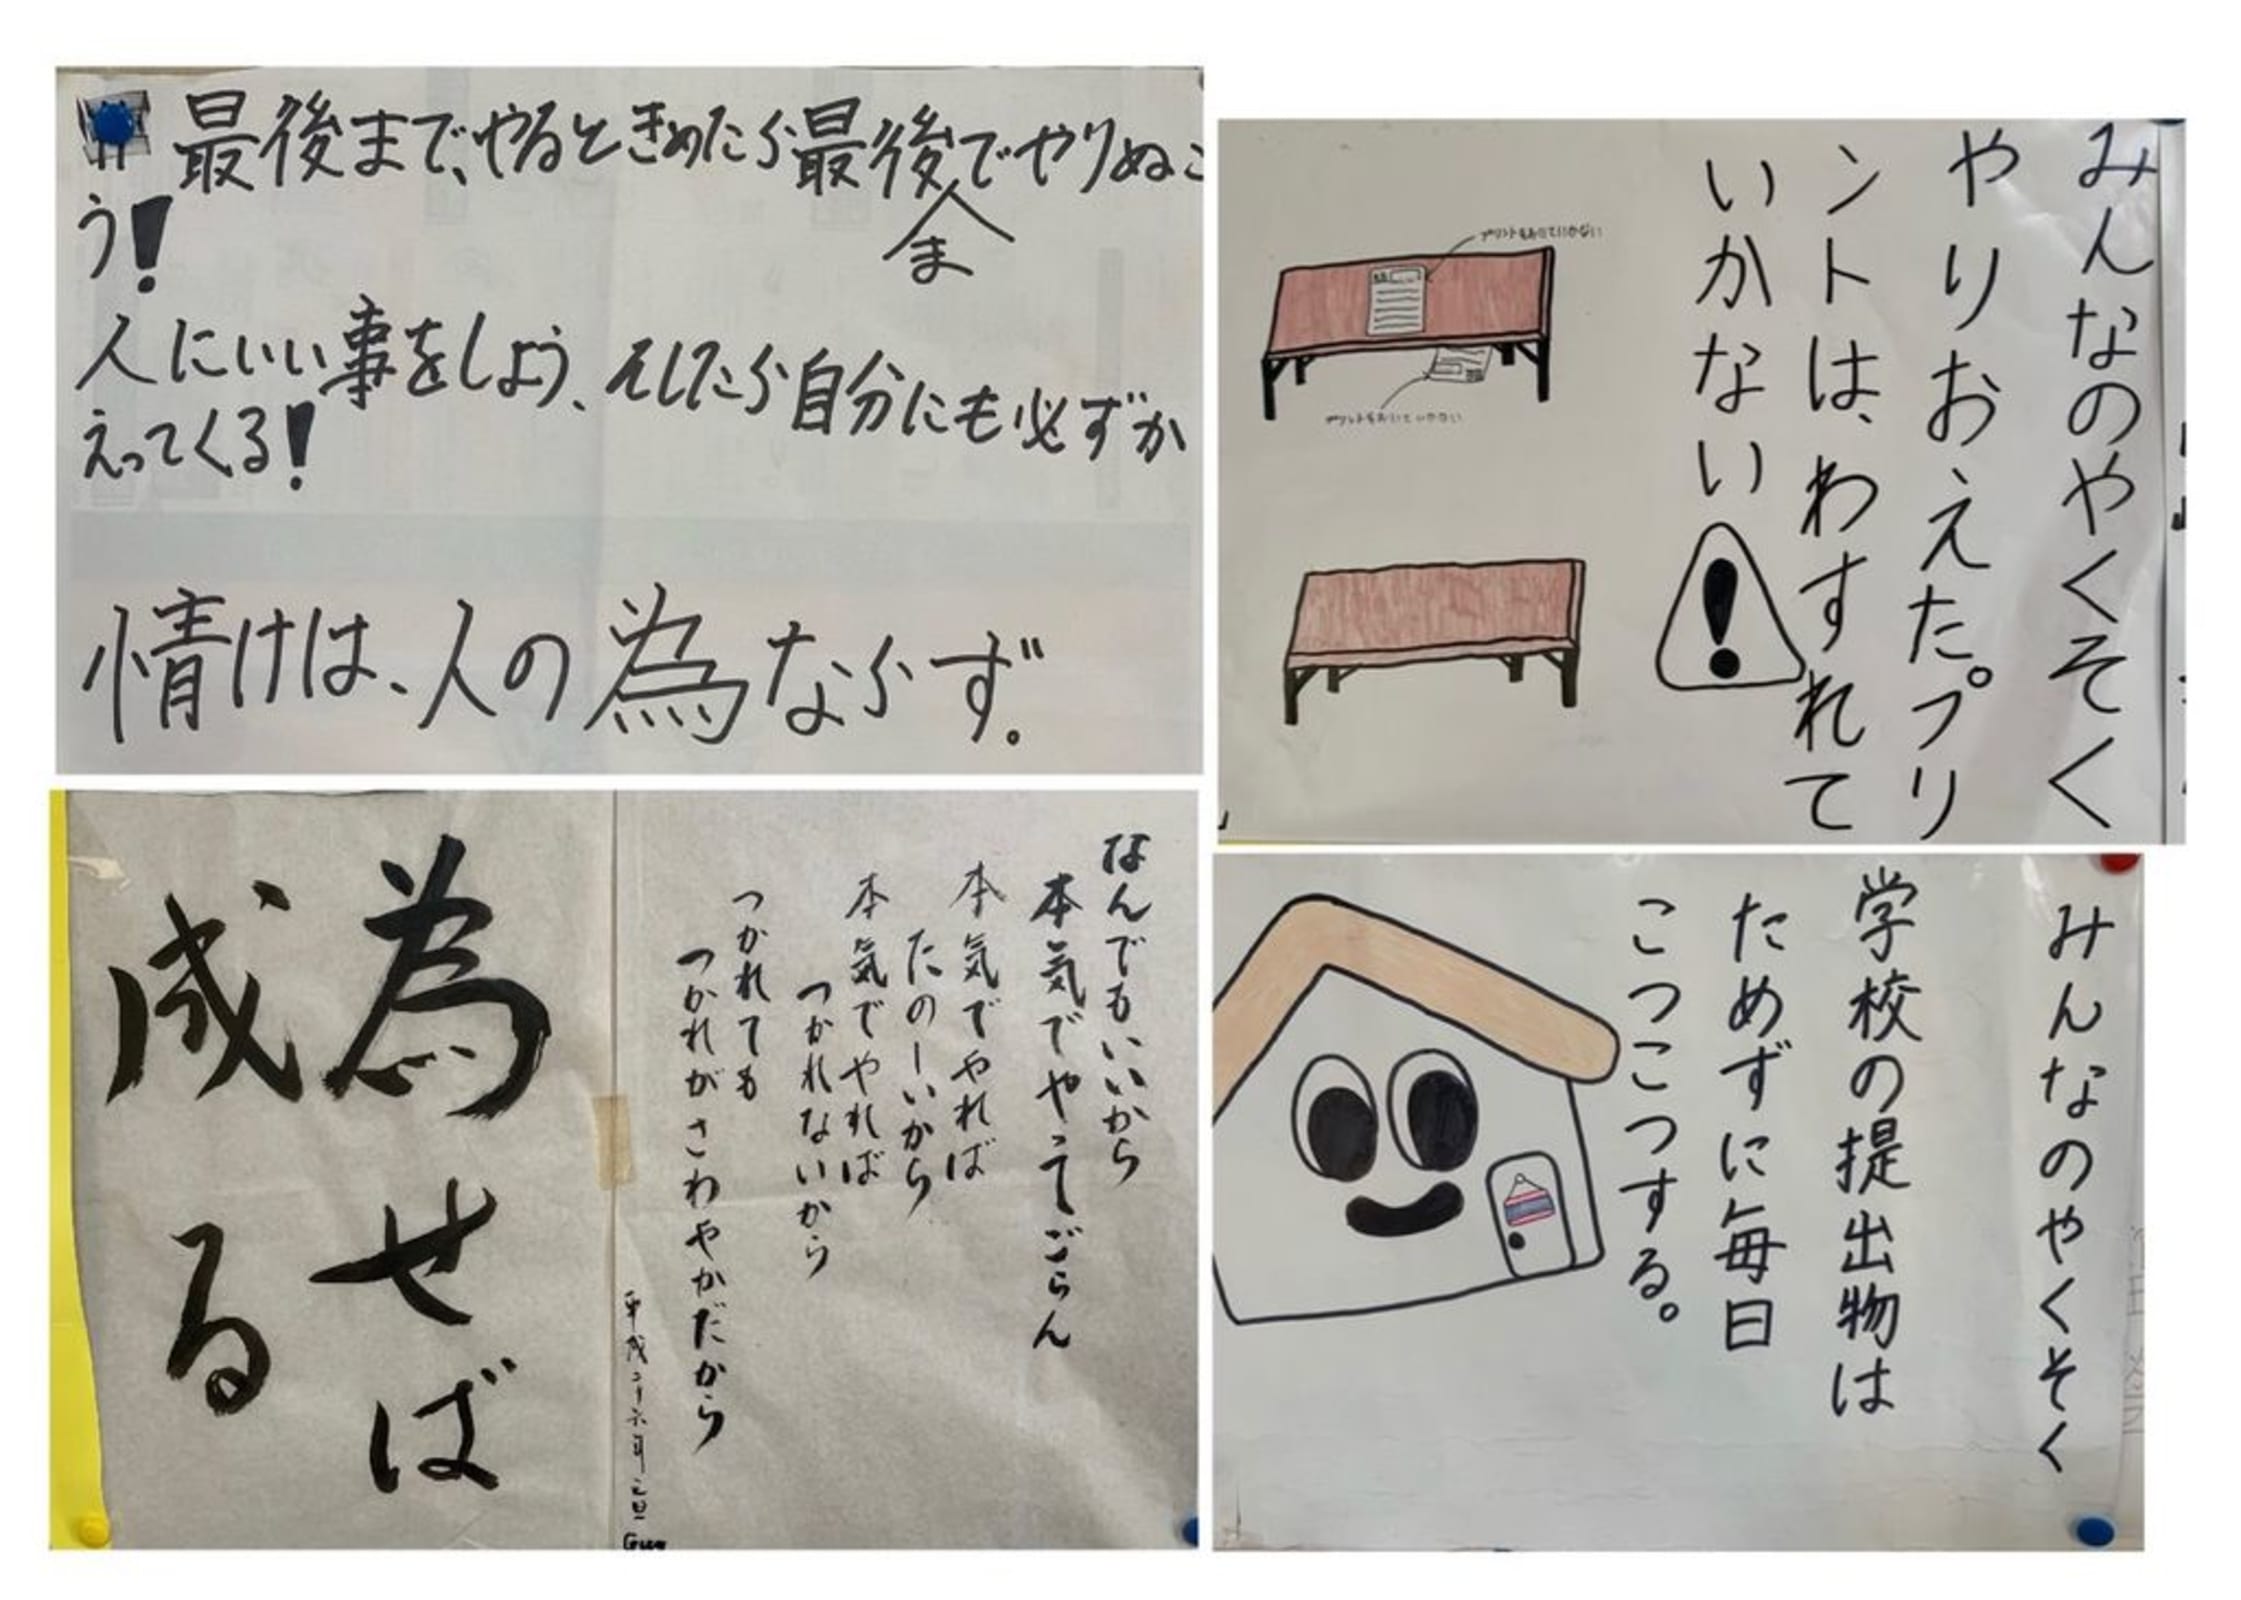 最後まで、やるときめたら最後でやりぬこ
ま
う!
人にいい事をしよう、そしたら自分にも必ずか
えってくる!
情けは、人の為ならず。
みんなのやくそく
やりおえたプリ
ントは、わすれて
いかない
プリントをおいていかない
プリントをおいていかない
なんでもいいから
本気でやってごらん
本気でやれば
たのーいから
本気でやれば
つかれないから
つかれても
つかれがさわやかだから
平成二十六年元旦
為せば
成る
みんなのやくそく
学校の提出物は
ためずに毎日
こつこつする。